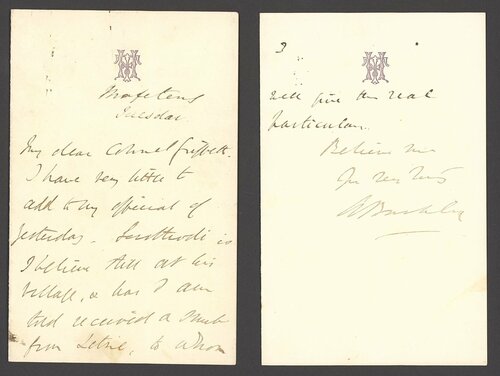 Mafeteng
Tuesday
My dear Colonel Griffith
I have very little to
add to my official of
yesterday. Lerothodi is
I believe still at his
village, & has I am
told received a
from Letsie, to whom
3
will give the real
particulars.
Believe me
Yrs very truly